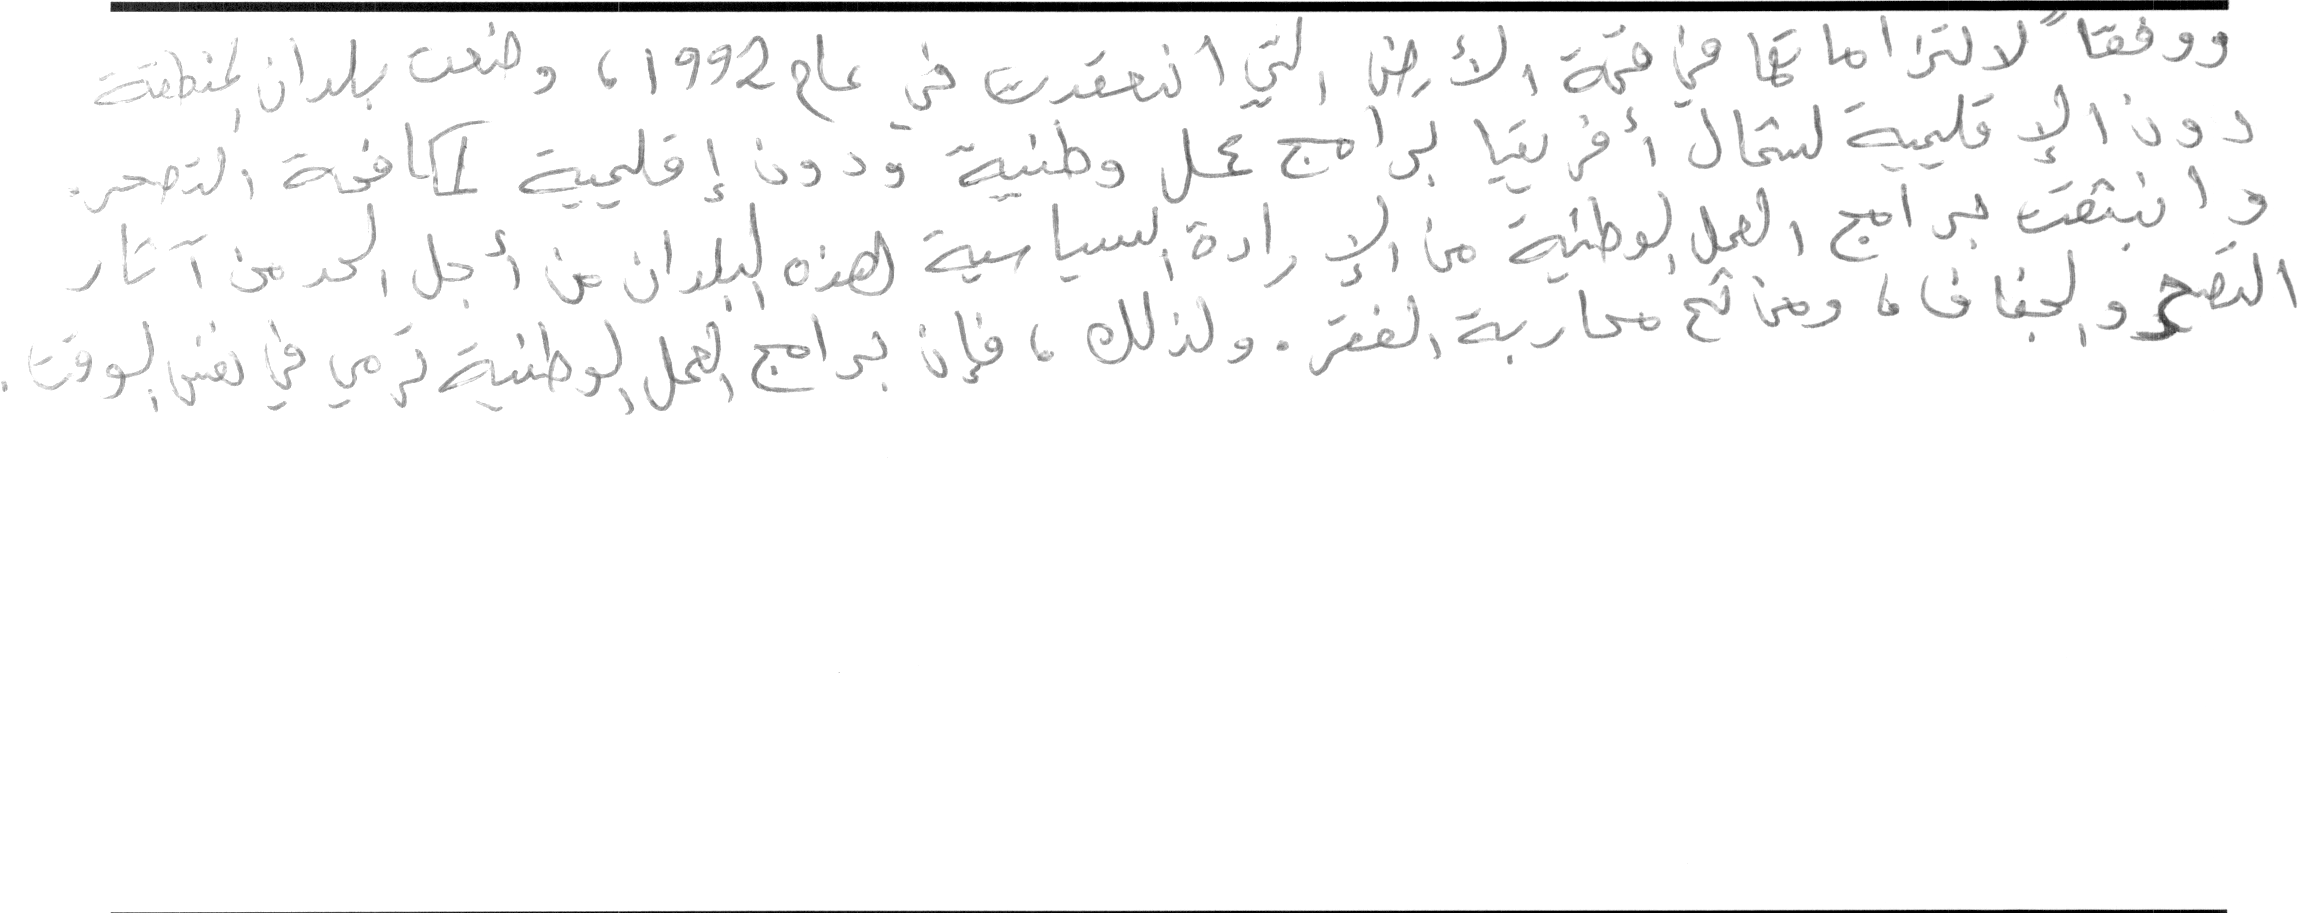 ووفقاً لالتزاماتها في قمة الأرض التي انعقدت في عام 1992، وضعت بلدان المنطقة
دون الإقليمية لشمال أفريقيا برامج عمل وطنية ودون إقليمية لمكافحة التصحر.
وانبثقت برامج العمل الوطنية من الإرادة السياسية لهذه البلدان من أجل الحد من آثار
التصحر والجفاف، ومن ثم محاربة الفقر. ولذلك، فإن برامج العمل الوطنية ترمي في نفس الوقت.